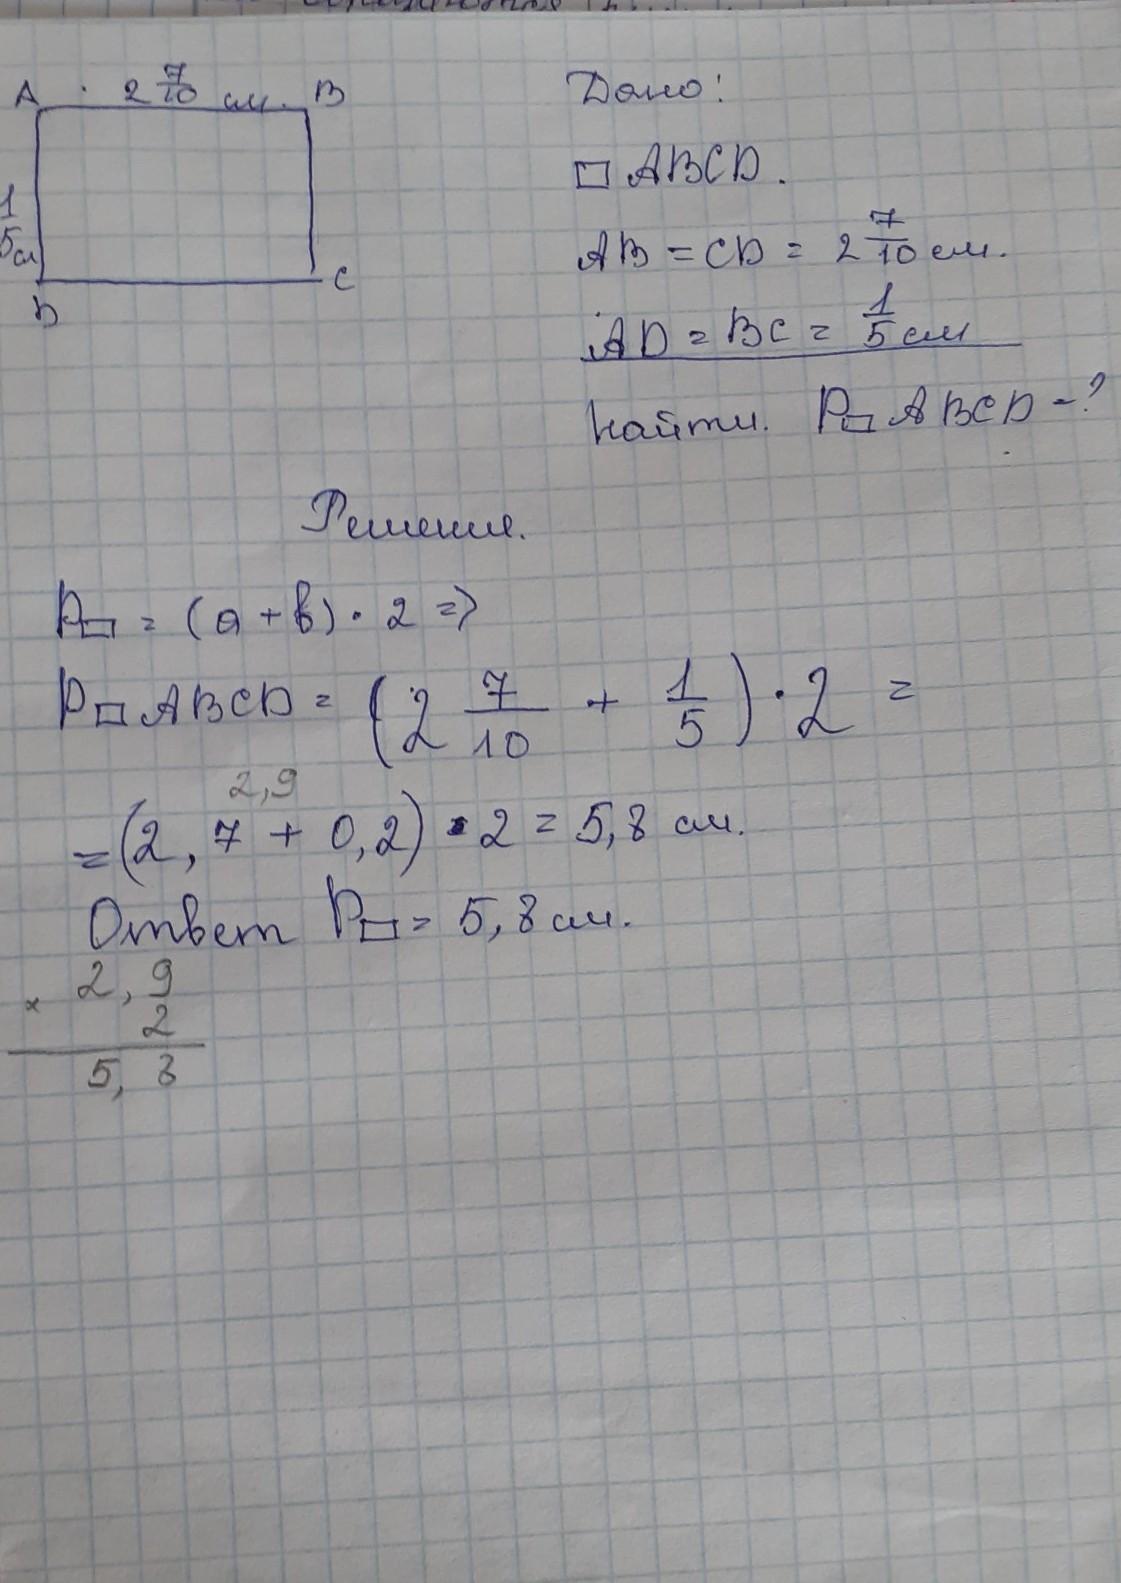 A 2 7/10 см. B
1/5 см
D C
Дано:
□ ABCD.
AB = CD = 2 7/10 см.
AD = BC = 1/5 см
Найти. P□ ABCD - ?
Решение.
P□ = (a + b) · 2 =>
P□ ABCD = (2 7/10 + 1/5) · 2 =
2,9
= (2,7 + 0,2) · 2 = 5,8 см.
Ответ P□ = 5,8 см.
× 2,9
2
5,8